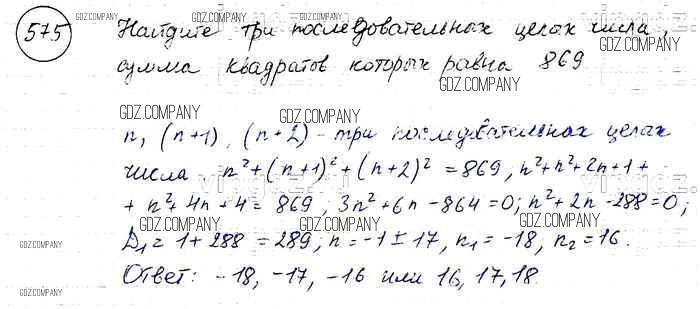 575 Найдите три последовательных целых числа,
сумма квадратов которых равна 869
n, (n+1), (n+2) - три последовательных целых
числа. n²+(n+1)²+(n+2)² = 869; n²+n²+2n+1+
+ n²+4n+4 = 869, 3n²+6n-864=0; n²+2n-288=0;
D₁ = 1+288 = 289; n=-1±17, n₁=-18, n₂=16.
Ответ: -18, -17, -16 или 16, 17, 18.
GDZ.COMPANY
GDZ.COMPANY
GDZ.COMPANY
GDZ.COMPANY
GDZ.COMPANY
GDZ.COMPANY
GDZ.COMPANY
GDZ.COMPANY
GDZ.COMPANY
GDZ.COMPANY
GDZ.COMPANY
GDZ.COMPANY